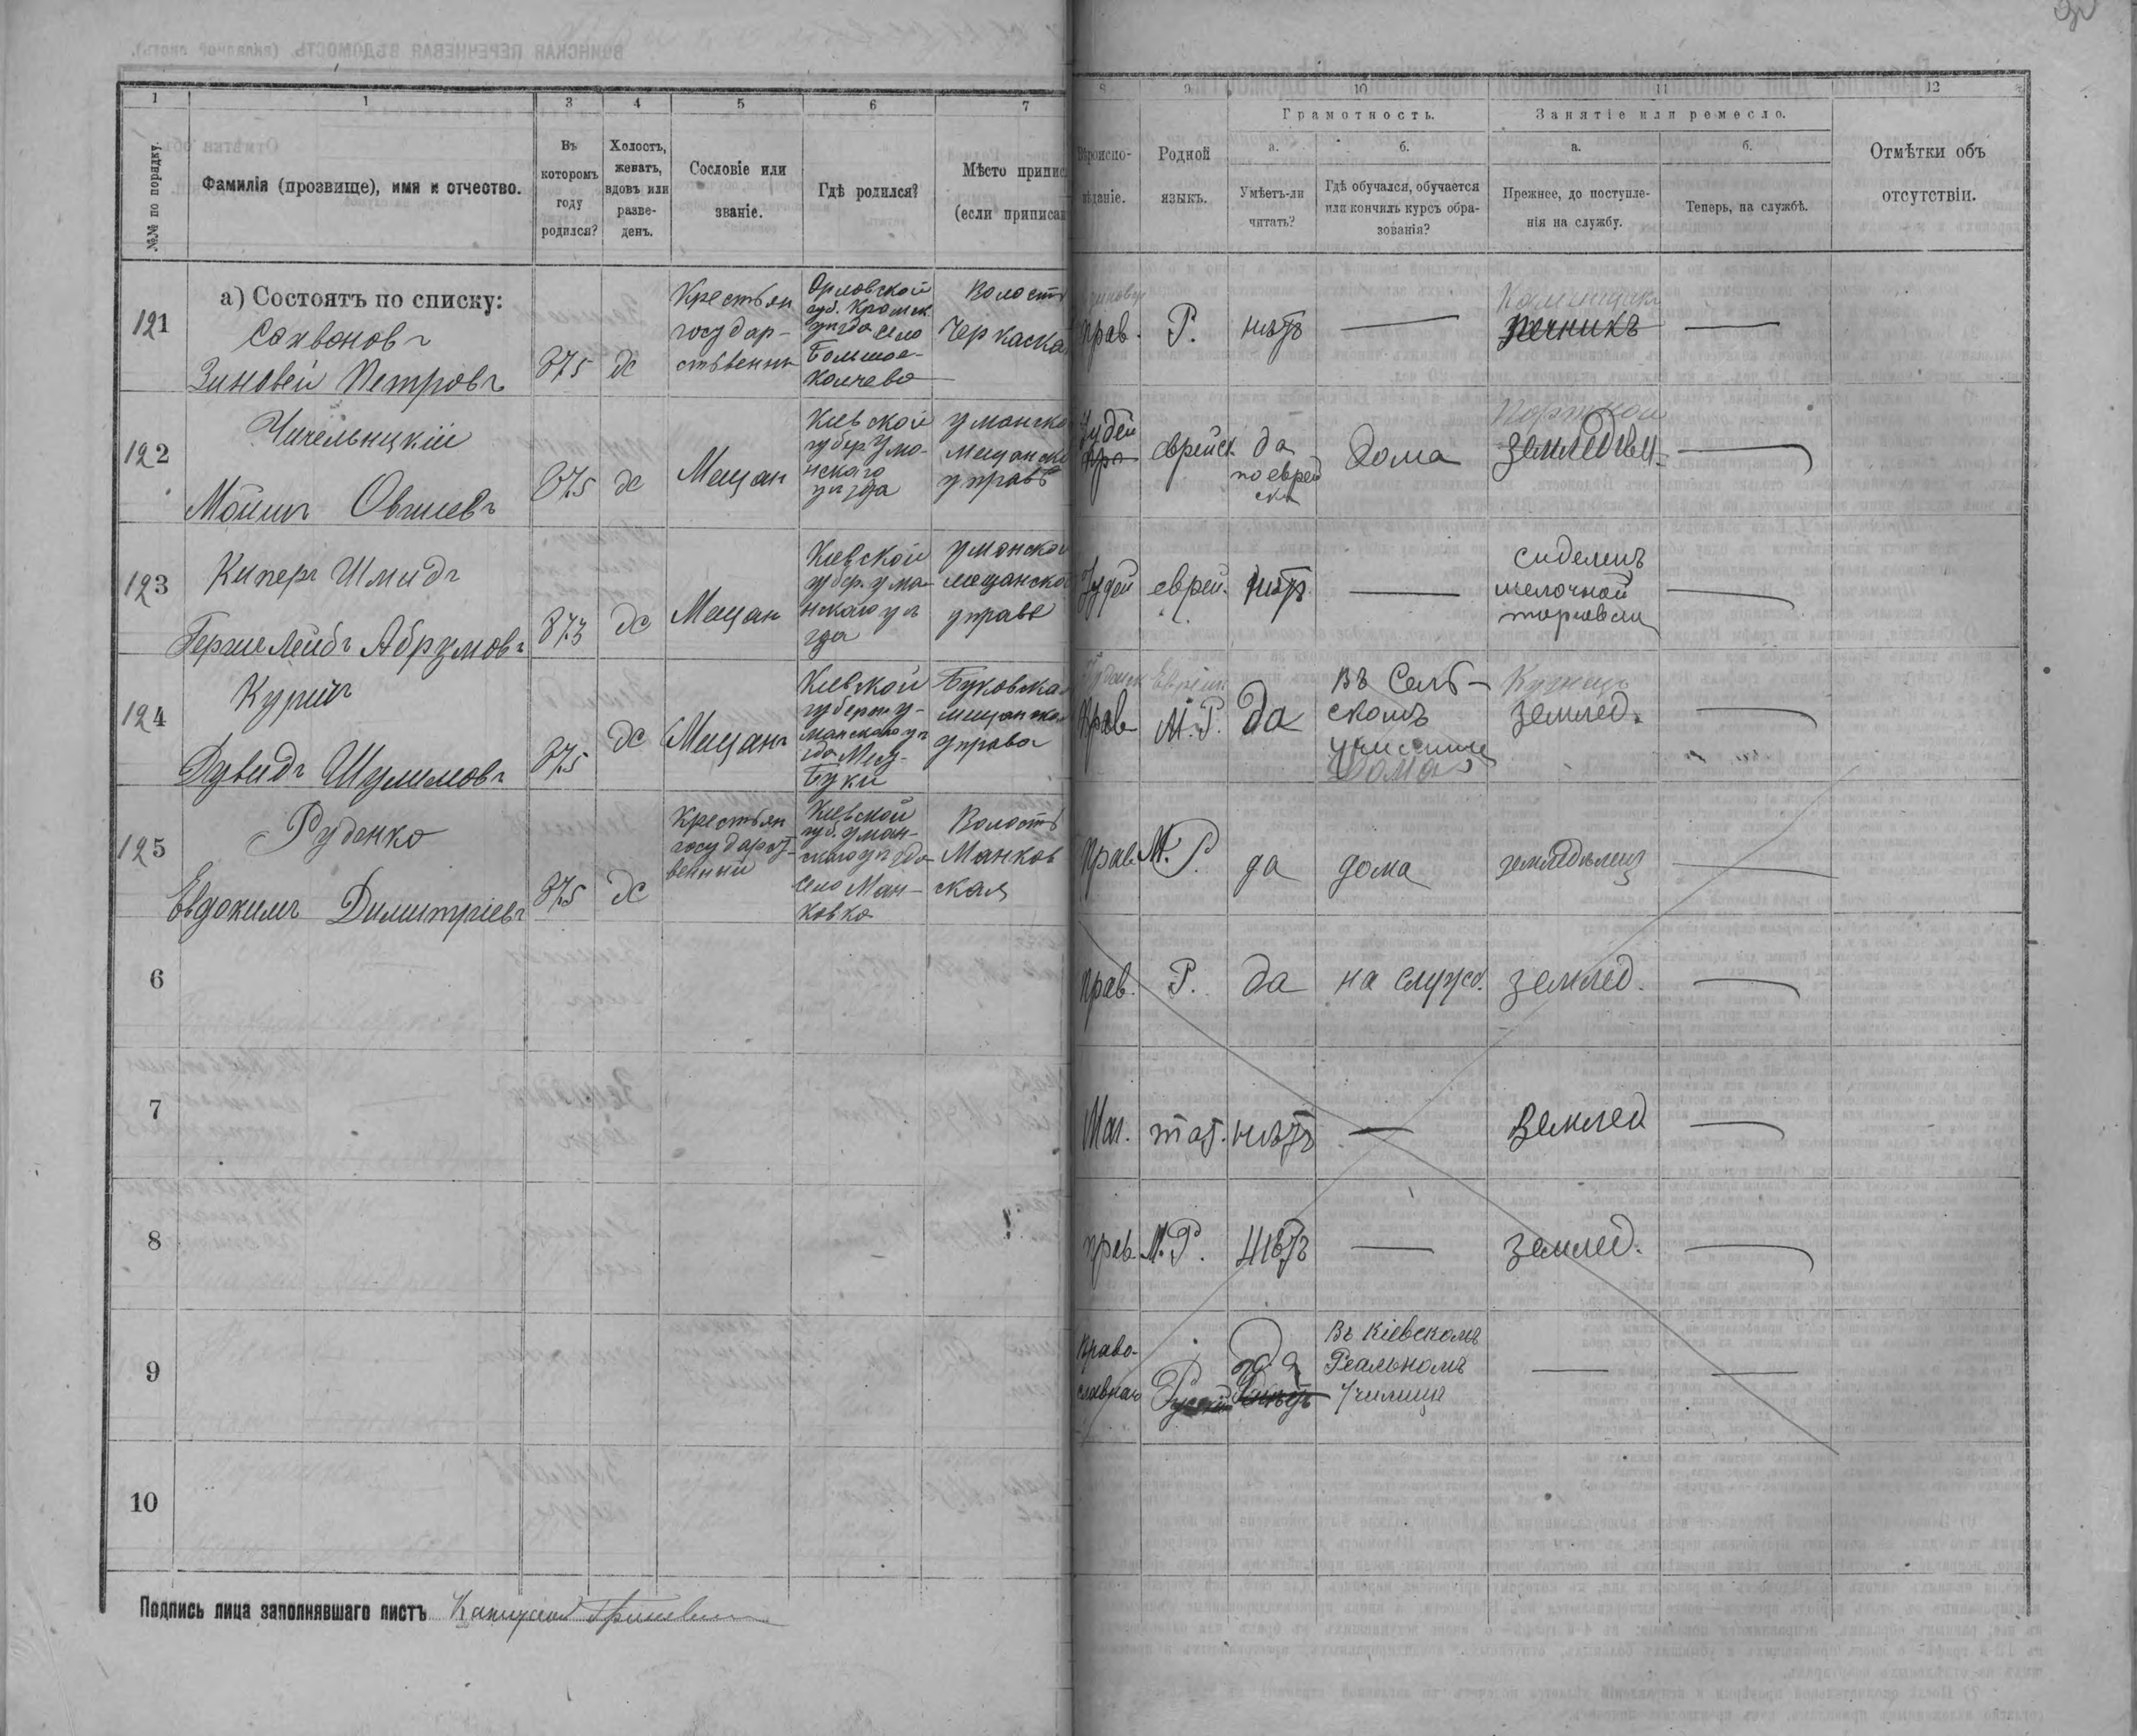 1 1 3 4 5 6 7 8 9 10 11 12
№№ по порядку.
Фамилія (прозвище), имя и отчество.
Въ которомъ году родился?
Холостъ, женатъ, вдовъ или разведенъ.
Сословіе или званіе.
Гдѣ родился?
Мѣсто припис
(если приписан
Вѣроиспо-
вѣданіе.
Родной языкъ.
Грамотность.
а. Умѣетъ-ли читать?
б. Гдѣ обучался, обучается или кончилъ курсъ образованія?
Занятіе или ремесло.
а. Прежнее, до поступленія на службу.
б. Теперь, на службѣ.
Отмѣтки объ отсутствіи.
а) Состоятъ по списку:
121
Сахвоновъ
Зиновей Петровъ
875
ж
Крестьян
государ-
ственны
Орловской
губ. Кромск
уѣзда село
Большое
Колчево
Волость
Черкаска
прав.
Р.
нѣтъ
—
Каменщикъ
печникъ
—
122
Чичельницкій
Мошко Овшиевъ
875
ж
Мещан
Киевской
губер. Ума-
нскаго
уѣзда
уманско
мещанск
управѣ
Іудей
пра
еврейск
да
по еврей
ски
дома
Портной
земледѣл
—
123
Киперъ Шмидъ
Герше Лейбъ Абрумовъ
873
ж
Мещан
Киевской
губер. ума-
нскаго уѣ
зда
уманской
мещанской
управе
Іудей
еврей.
нѣтъ
—
сиделецъ
мелочной
торговли
—
124
Дувидъ Шулимовъ
875
ж
Мещанъ
Киевской
губерн. у-
манскаго уѣ
зда Мес.
Буки
Буковска
мещанска
управа
прав
Еврейск
М. Р.
да
въ Сель-
скомъ
училище
дома
Кузнецъ
землед.
—
125
Руденко
Евдокимъ Димитріевъ
875
ж
Крестьян
государст-
венный
Киевской
губ. уман-
скаго уѣзда
село Ман-
ковка
Волость
Манков
ская
прав
М. Р.
да
дома
земледѣлец
—
6
прав.
Р.
да
на служб.
землед.
—
7
Маг.
тат.
нѣтъ
—
землед
—
8
прав
М. Р.
нѣтъ
—
землед.
—
9
Право-
славная
Русскій
да
Въ Кіевскомъ
Реальномъ
Училище
—
—
10
Подпись лица заполнявшаго листъ